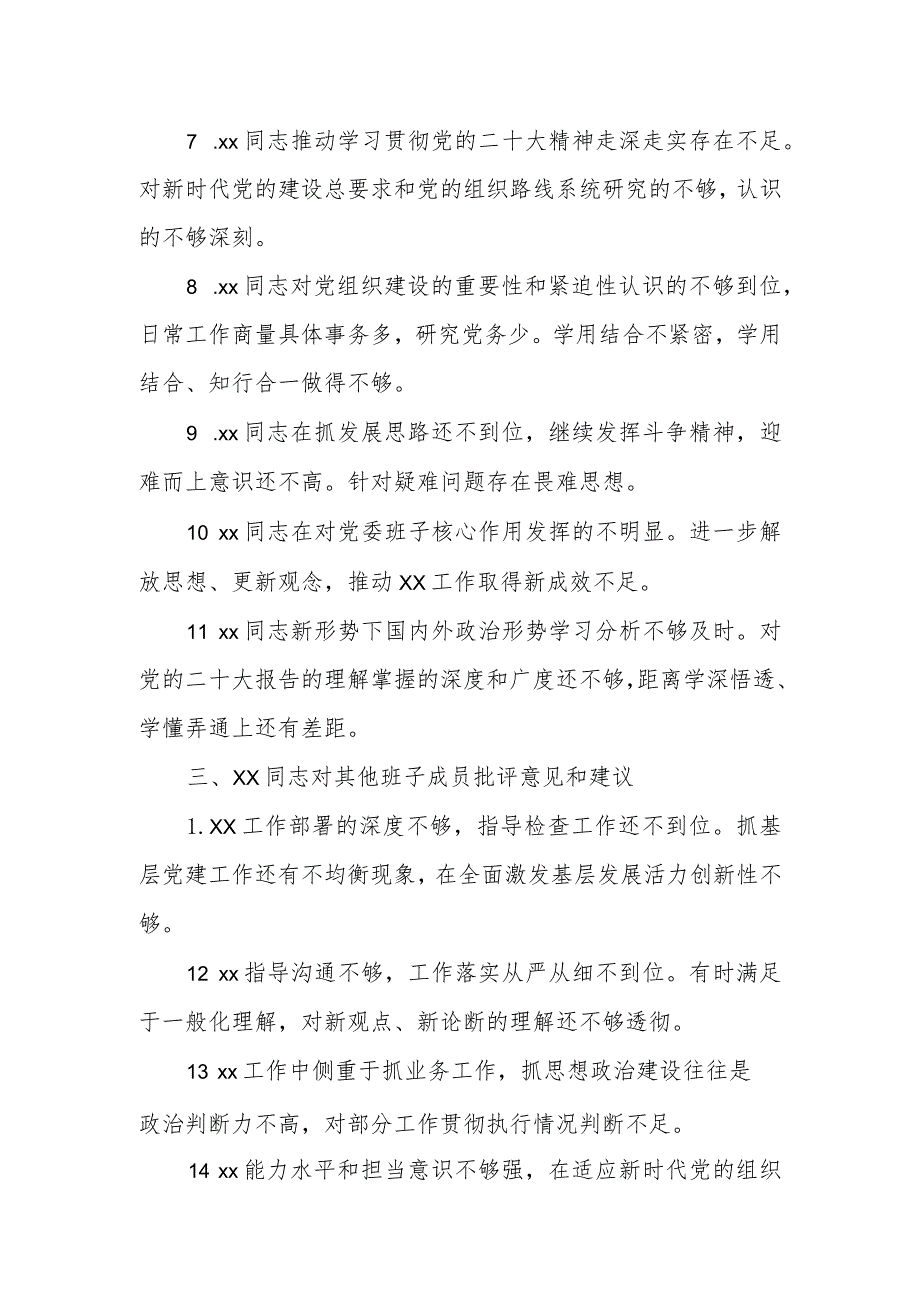 7 .xx同志推动学习贯彻党的二十大精神走深走实存在不足。
对新时代党的建设总要求和党的组织路线系统研究的不够，认识
的不够深刻。
8 .xx同志对党组织建设的重要性和紧迫性认识的不够到位，
日常工作商量具体事务多，研究党务少。学用结合不紧密，学用
结合、知行合一做得不够。
9 .xx同志在抓发展思路还不到位，继续发挥斗争精神，迎
难而上意识还不高。针对疑难问题存在畏难思想。
10 xx同志在对党委班子核心作用发挥的不明显。进一步解
放思想、更新观念，推动XX工作取得新成效不足。
11 xx同志新形势下国内外政治形势学习分析不够及时。对
党的二十大报告的理解掌握的深度和广度还不够，距离学深悟透、
学懂弄通上还有差距。
三、XX同志对其他班子成员批评意见和建议
1.XX工作部署的深度不够，指导检查工作还不到位。抓基
层党建工作还有不均衡现象，在全面激发基层发展活力创新性不
够。
12 xx指导沟通不够，工作落实从严从细不到位。有时满足
于一般化理解，对新观点、新论断的理解还不够透彻。
13 xx工作中侧重于抓业务工作，抓思想政治建设往往是
政治判断力不高，对部分工作贯彻执行情况判断不足。
14 xx能力水平和担当意识不够强，在适应新时代党的组织